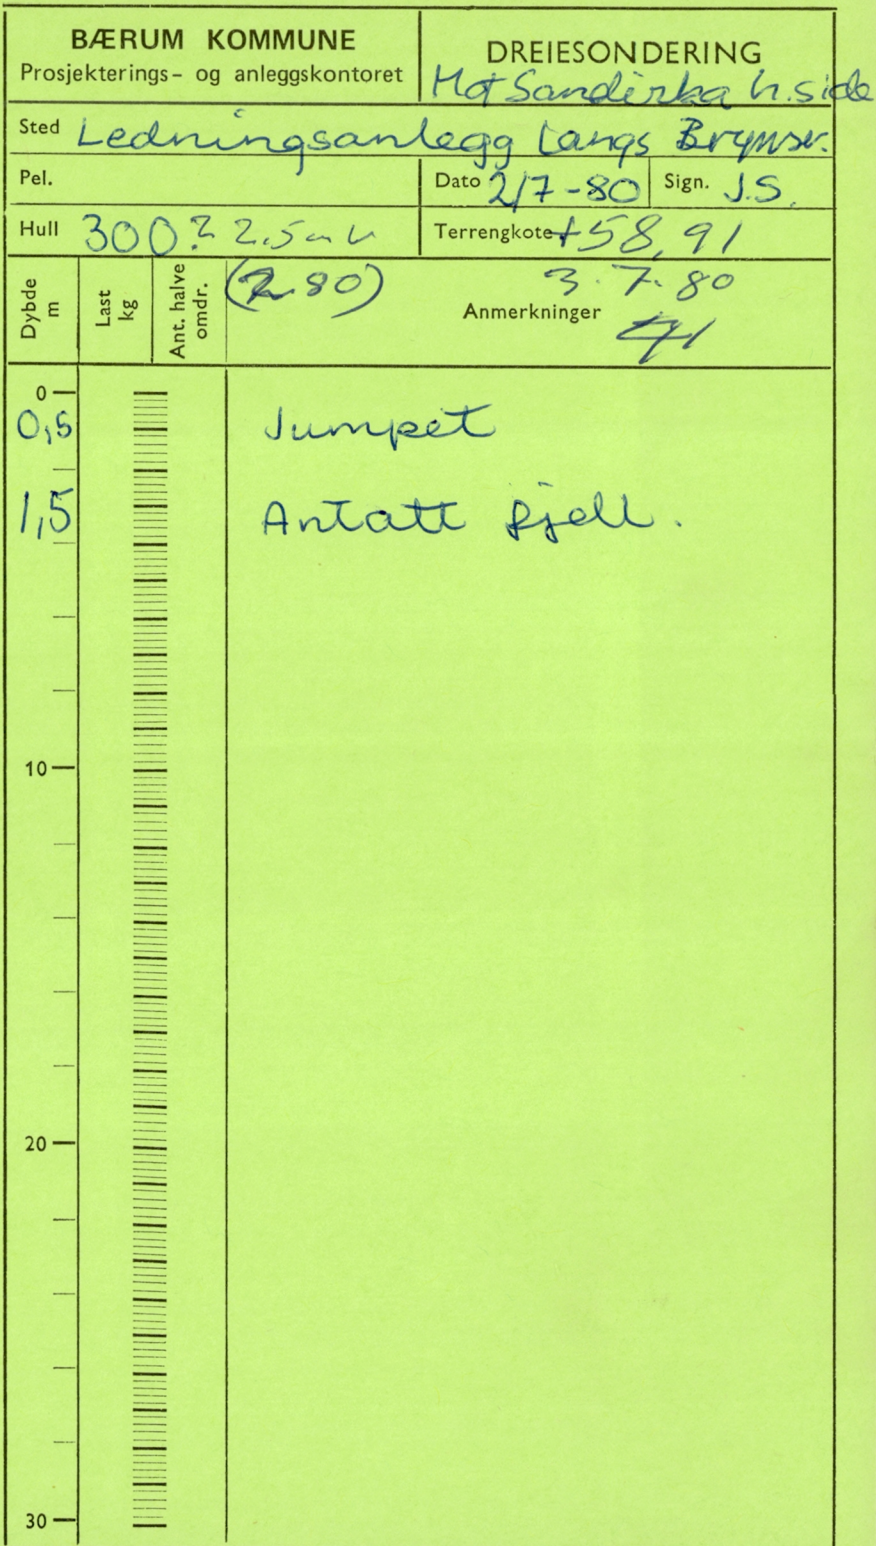 BÆRUM KOMMUNE
Prosjekterings- og anleggskontoret
DREIESONDERING
Mot Sandvika h.side
Sted Ledningsanlegg langs Brynsv.
Pel.
Dato 2/7-80
Sign. J.S.
Hull 300?
Terrengkote +58,91
Dybde m
Last kg
Ant. halve omdr.
3.7.80
Anmerkninger
0
0,5 Jumpet
1,5 Antatt fjell.
10
20
30